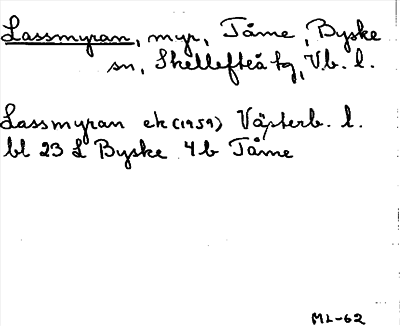 Lassmyran, myr, Tåme, Byske
sn, Skellefteå tg, Vb. l.
Lassmyran ek (1959) Västerb. l.
bl 23 L Byske 4b Tåme
ML-62